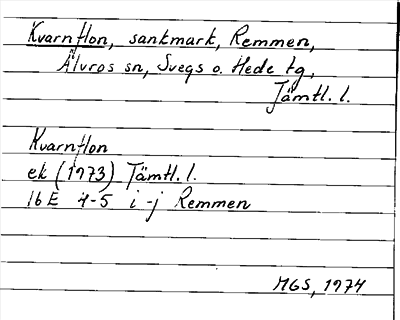 Kvarnflon, sankmark, Remmen,
Älvros sn, Svegs o. Hede tg,
Jämtl. l.
Kvarnflon
ek (1973) Jämtl. l.
16 E 4-5 i-j Remmen
MGS, 1974